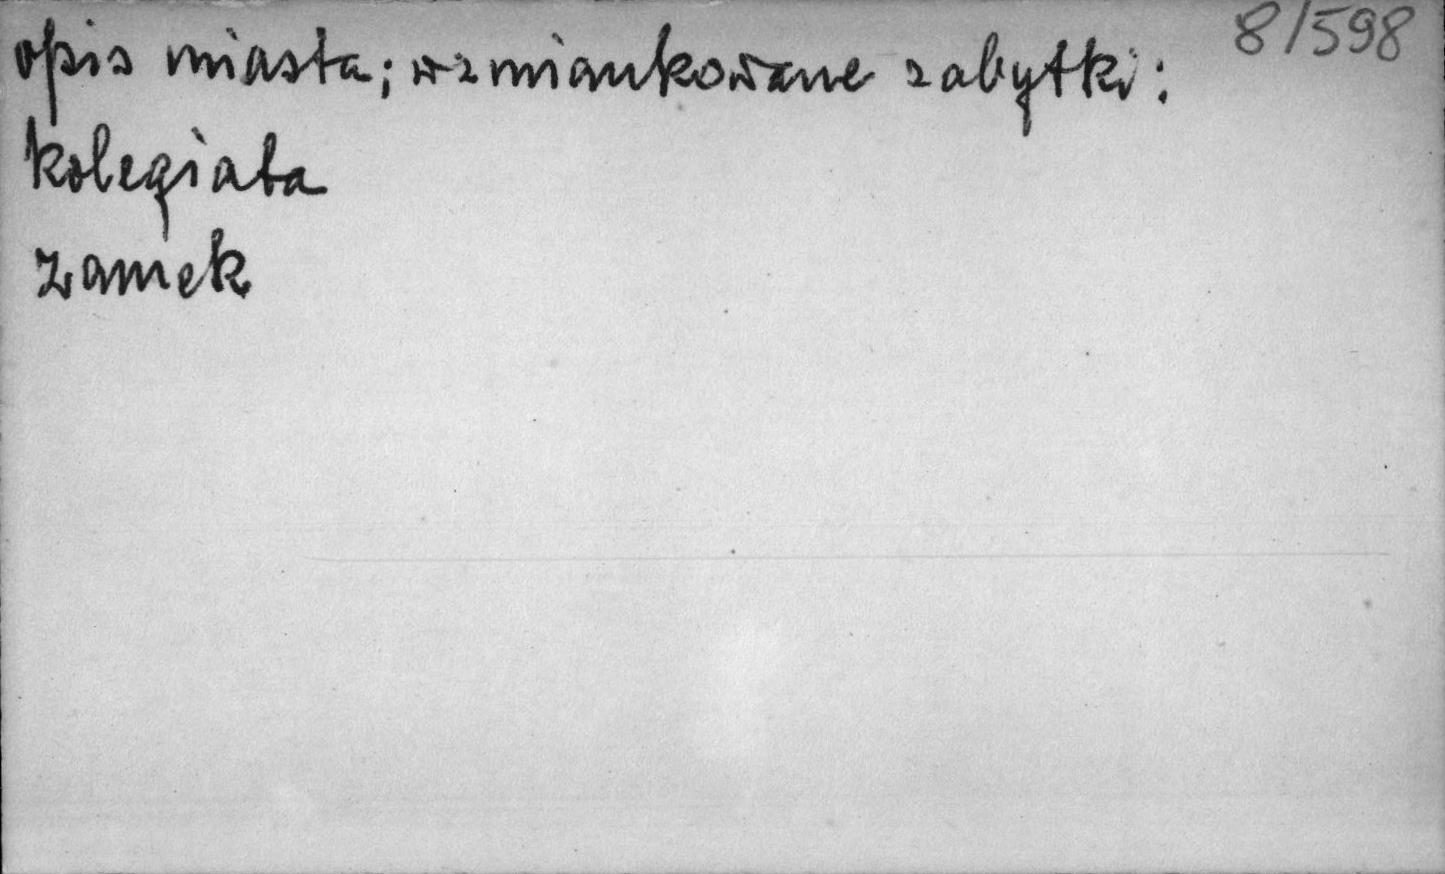 8/598
opis miasta; wzmiankowane zabytki:
kolegiata
zamek